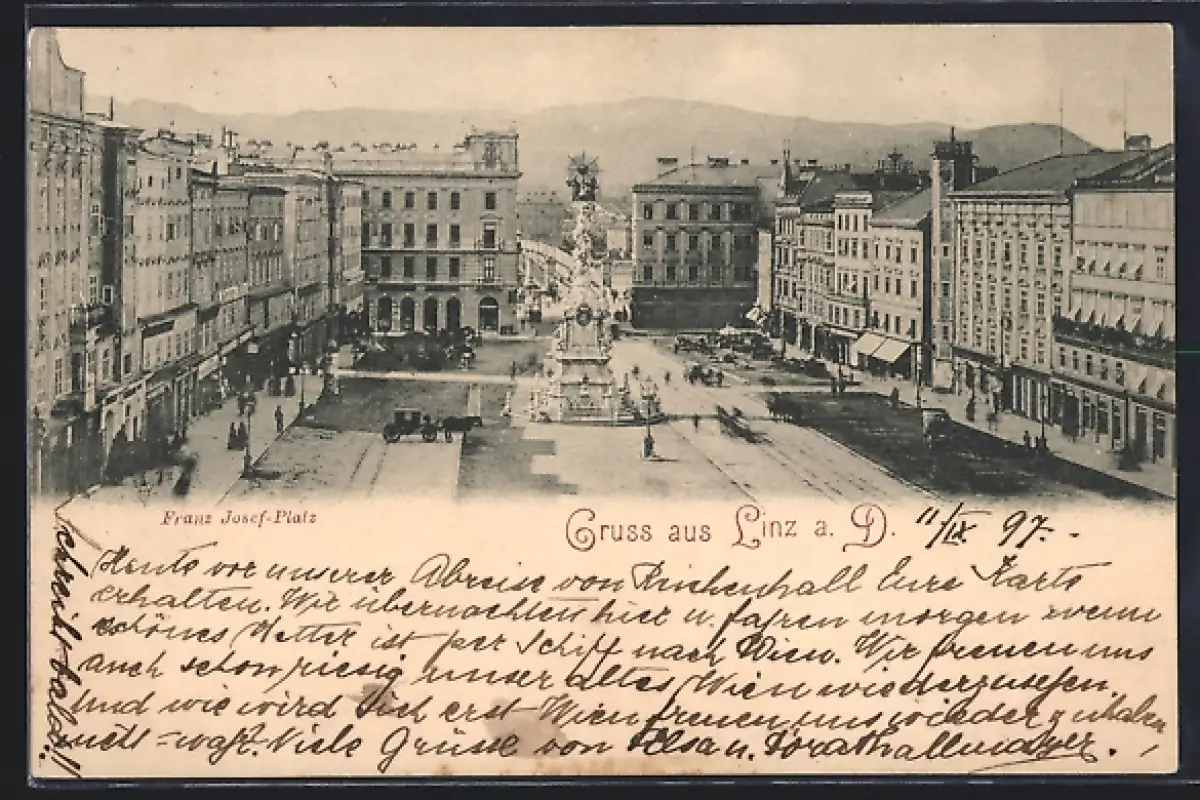 Franz Josef-Platz
Gruss aus Linz a. D. 11/IX 97.
Heute vor unserer Abreise von Reichenhall Eure Karte
erhalten. Wir übernachten hier u. fahren morgen wenn
schönes Wetter ist per Schiff nach Wien. Wir freuen uns
auch schon riesig unser altes Wien wiederzusehen.
Und wie wird sich erst Wien freuen uns wieder zu haben,
was? Viele Grüsse von Elsa u.
Schreib bald!!